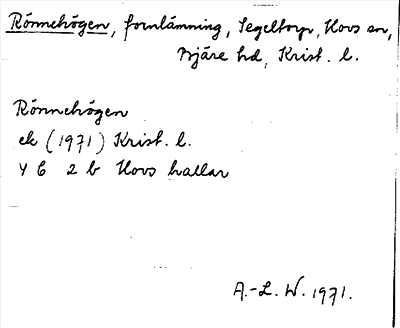 Rönnehögen, fornlämning, Segeltorp, Hovs sn,
Bjäre hd, Krist. l.
Rönnehögen
ek (1971) Krist. l.
4 C 2 b Hovs hallar
A.-L. W. 1971.